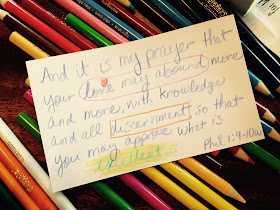 And it is my prayer that
your love may abound more
and more, with knowledge
and all discernment, so that
you may approve what is
excellent
Phil 1:9-10a